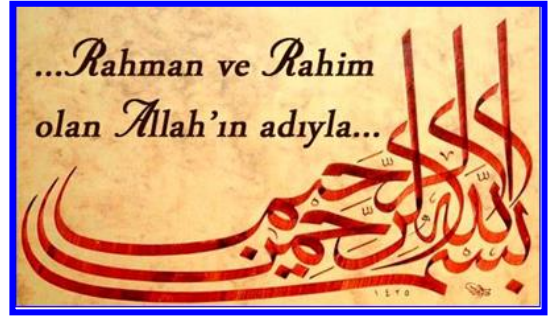 ...Rahman ve Rahim
olan Allah'ın adıyla...
بسم الله الرحمن الرحيم
١٤٢٥